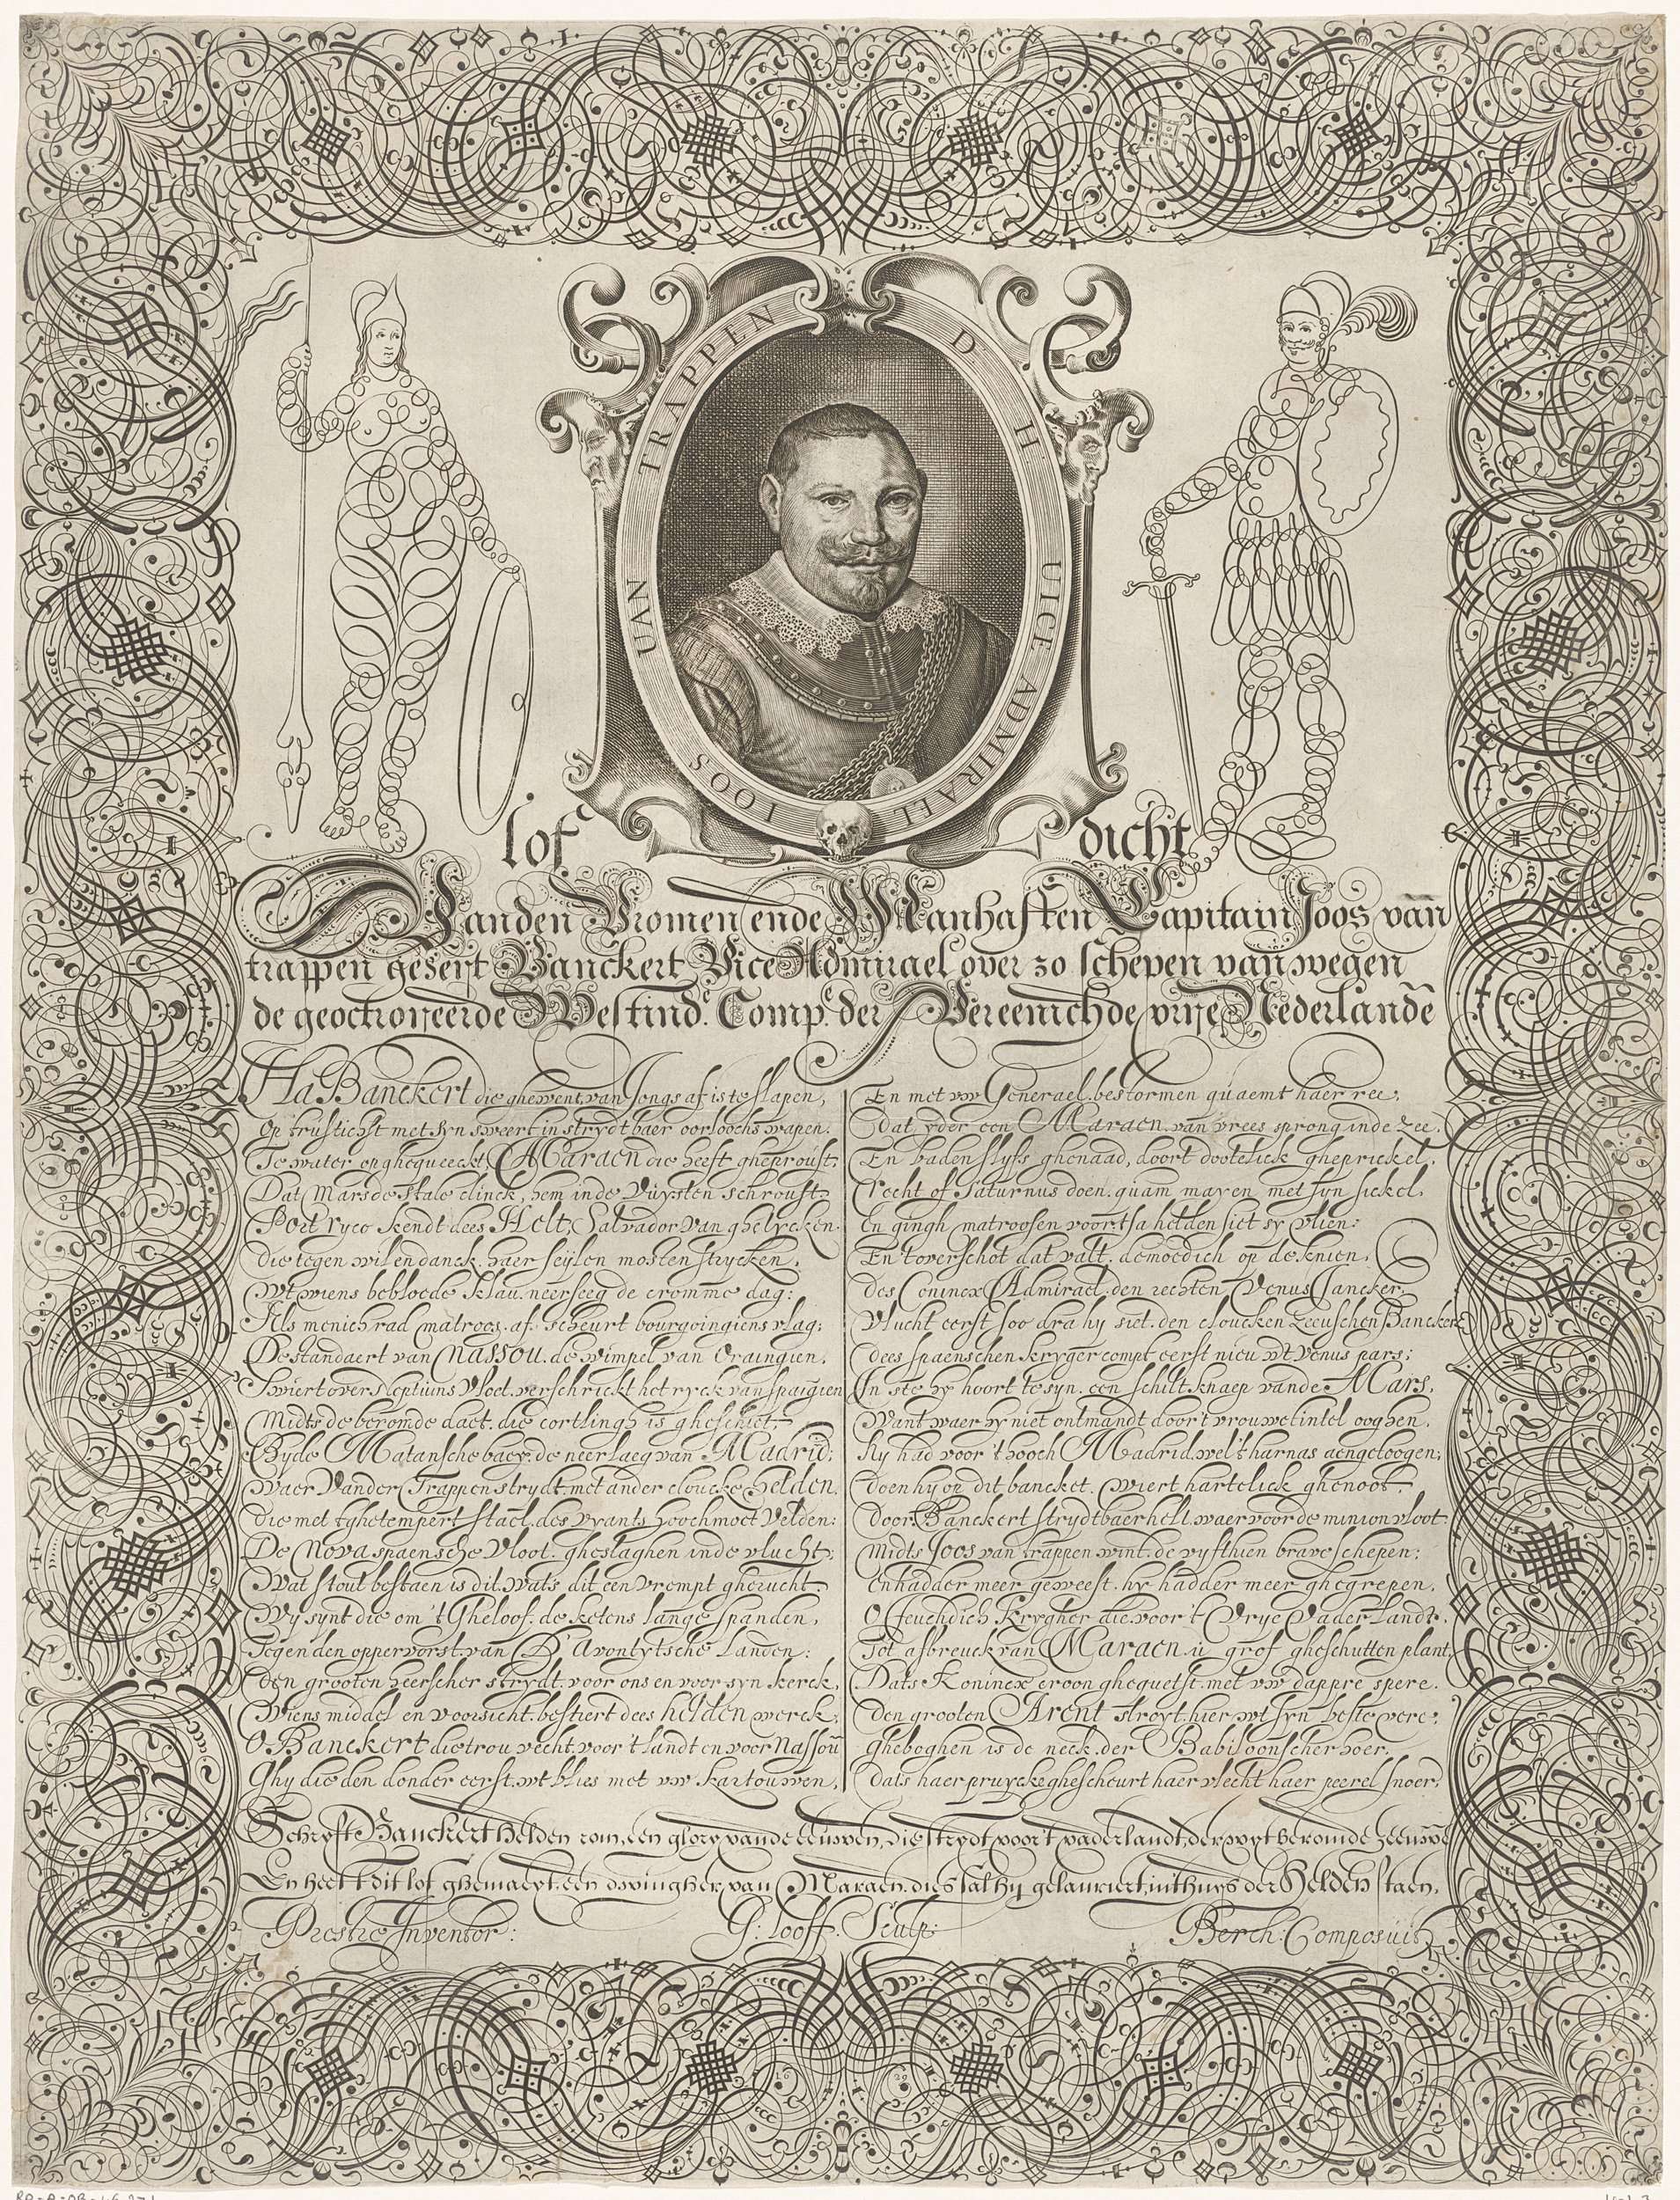 D H UICE ADMIRAEL IOOS UAN TRAPPEN
lof dicht
Vanden Vromen ende Manhaften Capitain Joos van
trappen geseyt Banckert Vice Admirael over 30 schepen van wegen
de geoctroyeerde Westind. Comp. der Vereenichde vrije Nederlande
Ha Banckert die ghewent van Jongs af is te slapen,
Op trustichst met syn sweert in strydtbaer oorloochs wapen.
Te water opghequeeckt, Maraen die heeft gheproüft;
Dat Mars de stale clinck, hem inde Vüysten schroüft;
Port ryco kendt dees Helt, Salvador van ghelycken:
die tegen wil en danck haer seylen mosten strycken,
Wt wiens bebloede klau neerseeg de cromme dag:
Als menich rad matroos af scheurt bourgoingiens vlag;
De standaert van Nassou. de wimpel van Oraingien.
Swiert over Neptuns Vloet. verschrickt het ryck van spaigien
Midts de beromde daet. die cortlingh is gheschiet,
Byde Matansche baey. de neerlaeg van Madrid;
Waer Vander Trappen strydt, met ander cloucke helden,
die met tghetempert stael, des vyants hoochmoet velden:
De Nova spaensche Vloot. gheslaghen inde vlucht;
Wat stout bestaen is dit, wats dit een vrempt gherucht.
Wy synt die om 't Gheloof: de ketens lange spanden,
Tegen den oppervorst van D'Avontytsche Landen:
den grooten heerscher strydt, voor ons en voor syn kerck,
Wiens middel en voorsicht, bestiert dees helden werck;
O Banckert die trou vecht, voor 't landt en voor Nassou
Ghy die den donder eerst, wt blies met vw kartouwen,
En met vw Generael. bestormen quaemt haer ree,
dat yder een Maraen. van vrees sprong inde zee.
En baden slyfs ghenaad, doort dootelick gheprickel,
recht of Saturnus doen, quam mayen met syn sickel,
En gingh matroosen voort sa helden siet sy vlien:
En t overschot dat valt. demoedich op de knien.
des Coninex Admirael. den rechten Venus Jancker,
Vlucht eerst soo dra hy siet. den cloucken zeeuschen Banckert
dees spaenschen kryger compt eerst nieu wt Venus pars;
In ste hy hoort te syn. een schilt knaep vande Mars,
Want waer hy niet ontmandt doort vrouwelintel ooghen,
hy had voor 't hooch Madrid wel 't harnas aengetoogen;
doen hy op dit bancket. wiert hartelick ghenoot,
door Banckert strydtbaer helt. waer voor de minion vloot
midts Joos van trappen wint. de vyfthien brave schepen;
en hadder meer geweest. hy hadder meer ghegrepen,
O Jeuchdich krygher die voor 't Vrye Vaderlandt,
Tot afbreuck van Maraen. u grof gheschutten plant,
Dats Koninex croon ghequetst. met vw dappre spere.
den grooten Arent stroyt. hier wt syn beste vere;
Gheboghen is de neck. der Babiloonscher hoer.
dats haer pruycke ghescheurt haer vlecht haer peerel snoer,
Schryft Banckert helden rom, een glory vande eeuwen, die strydt voor't vaderlandt, der wyt beromde zeeuwe
En heeft dit lof ghemaeyt. een dwingher van Maraen. dies sal hy gelauriert, int huys der Helden staen.
Prestre Inventor: G: Looff. Sculp: Berch: Composuit